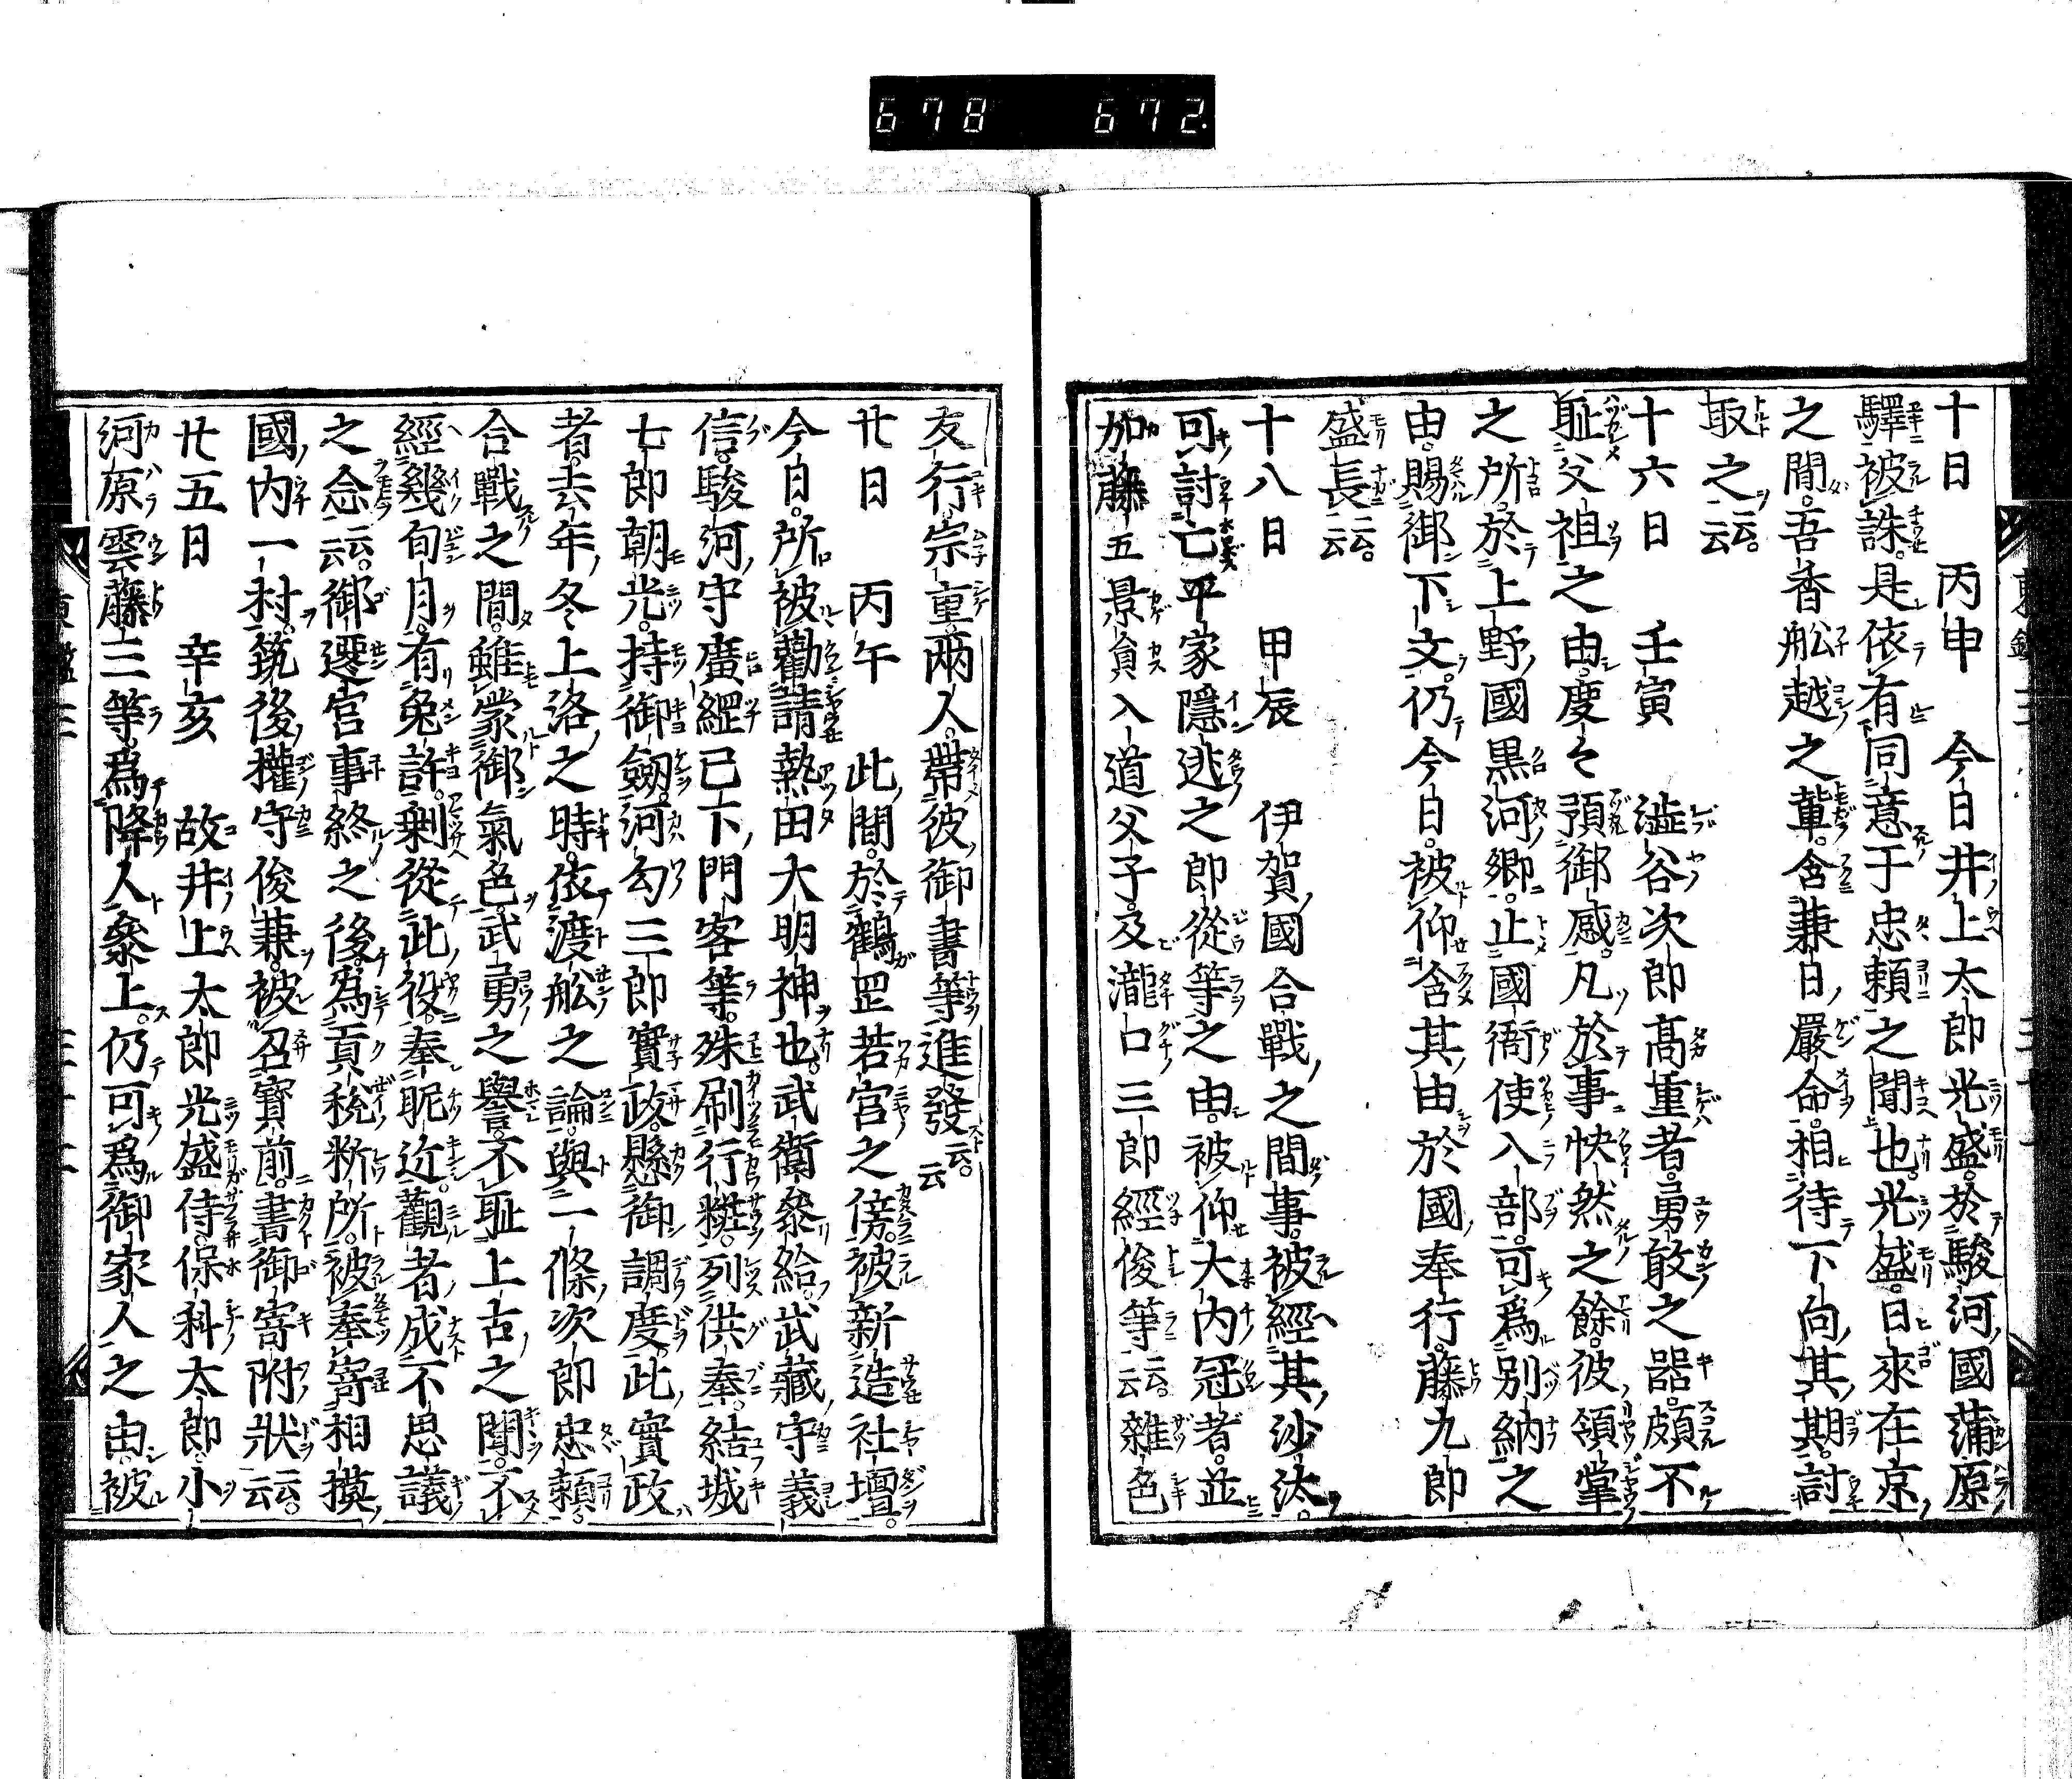 678 672
十日　丙申　今日井上太郎光盛。於駿河國蒲原
驛被誅。是依有同意于忠頼之聞也。光盛。日來在京
之間。吾香舩越之輩。含兼日嚴命。相待下向其期。討
取之云云。
十六日　壬寅　澁谷次郎髙重者。勇敢之器。頗不
耻父祖之由。度々預御感。凡於事怏然之餘。彼領掌
之所於上野國黒河郷。止國衙使入部。可爲別納之
由。賜御下文。仍今日。被仰含其由於國奉行。藤九郎
盛長云云。
十八日　甲辰　伊賀國合戰之間事。被經其沙汰。
可討亡平家隱逃之郎從等之由。被仰大内冠者。並
加藤五景貟入道父子。及瀧口三郎經俊等云云。雜色
友行。宗重。兩人。帶彼御書等進發云云。
廿日　丙午　此間。於鶴罡若宮之傍。被新造社壇。
今日。所被勸請熱田大明神也。武衛參給。武藏守義
信。駿河守廣經已下。門客等。殊刷行粧列供奉。結城
七郎朝光。持御劔。河勾三郎實政。懸御調度。此實政
者。去年冬上洛之時。依渡舩之論。與一條次郎忠頼。
合戰之間。雖蒙御氣色武勇之譽。不耻上古之聞。不
經幾旬月。有免許。剩從此役。奉昵近。觀者成不思議
之念云云。御遷宮事終之後。爲貢税料所。被奉寄相摸
國内一村。筑後權守俊兼。被召寶前。書御寄附狀云云。
廿五日　辛亥　故井上太郎光盛侍。保科太郎小
河原雲藤三等。爲降人參上。仍可爲御家人之由。被